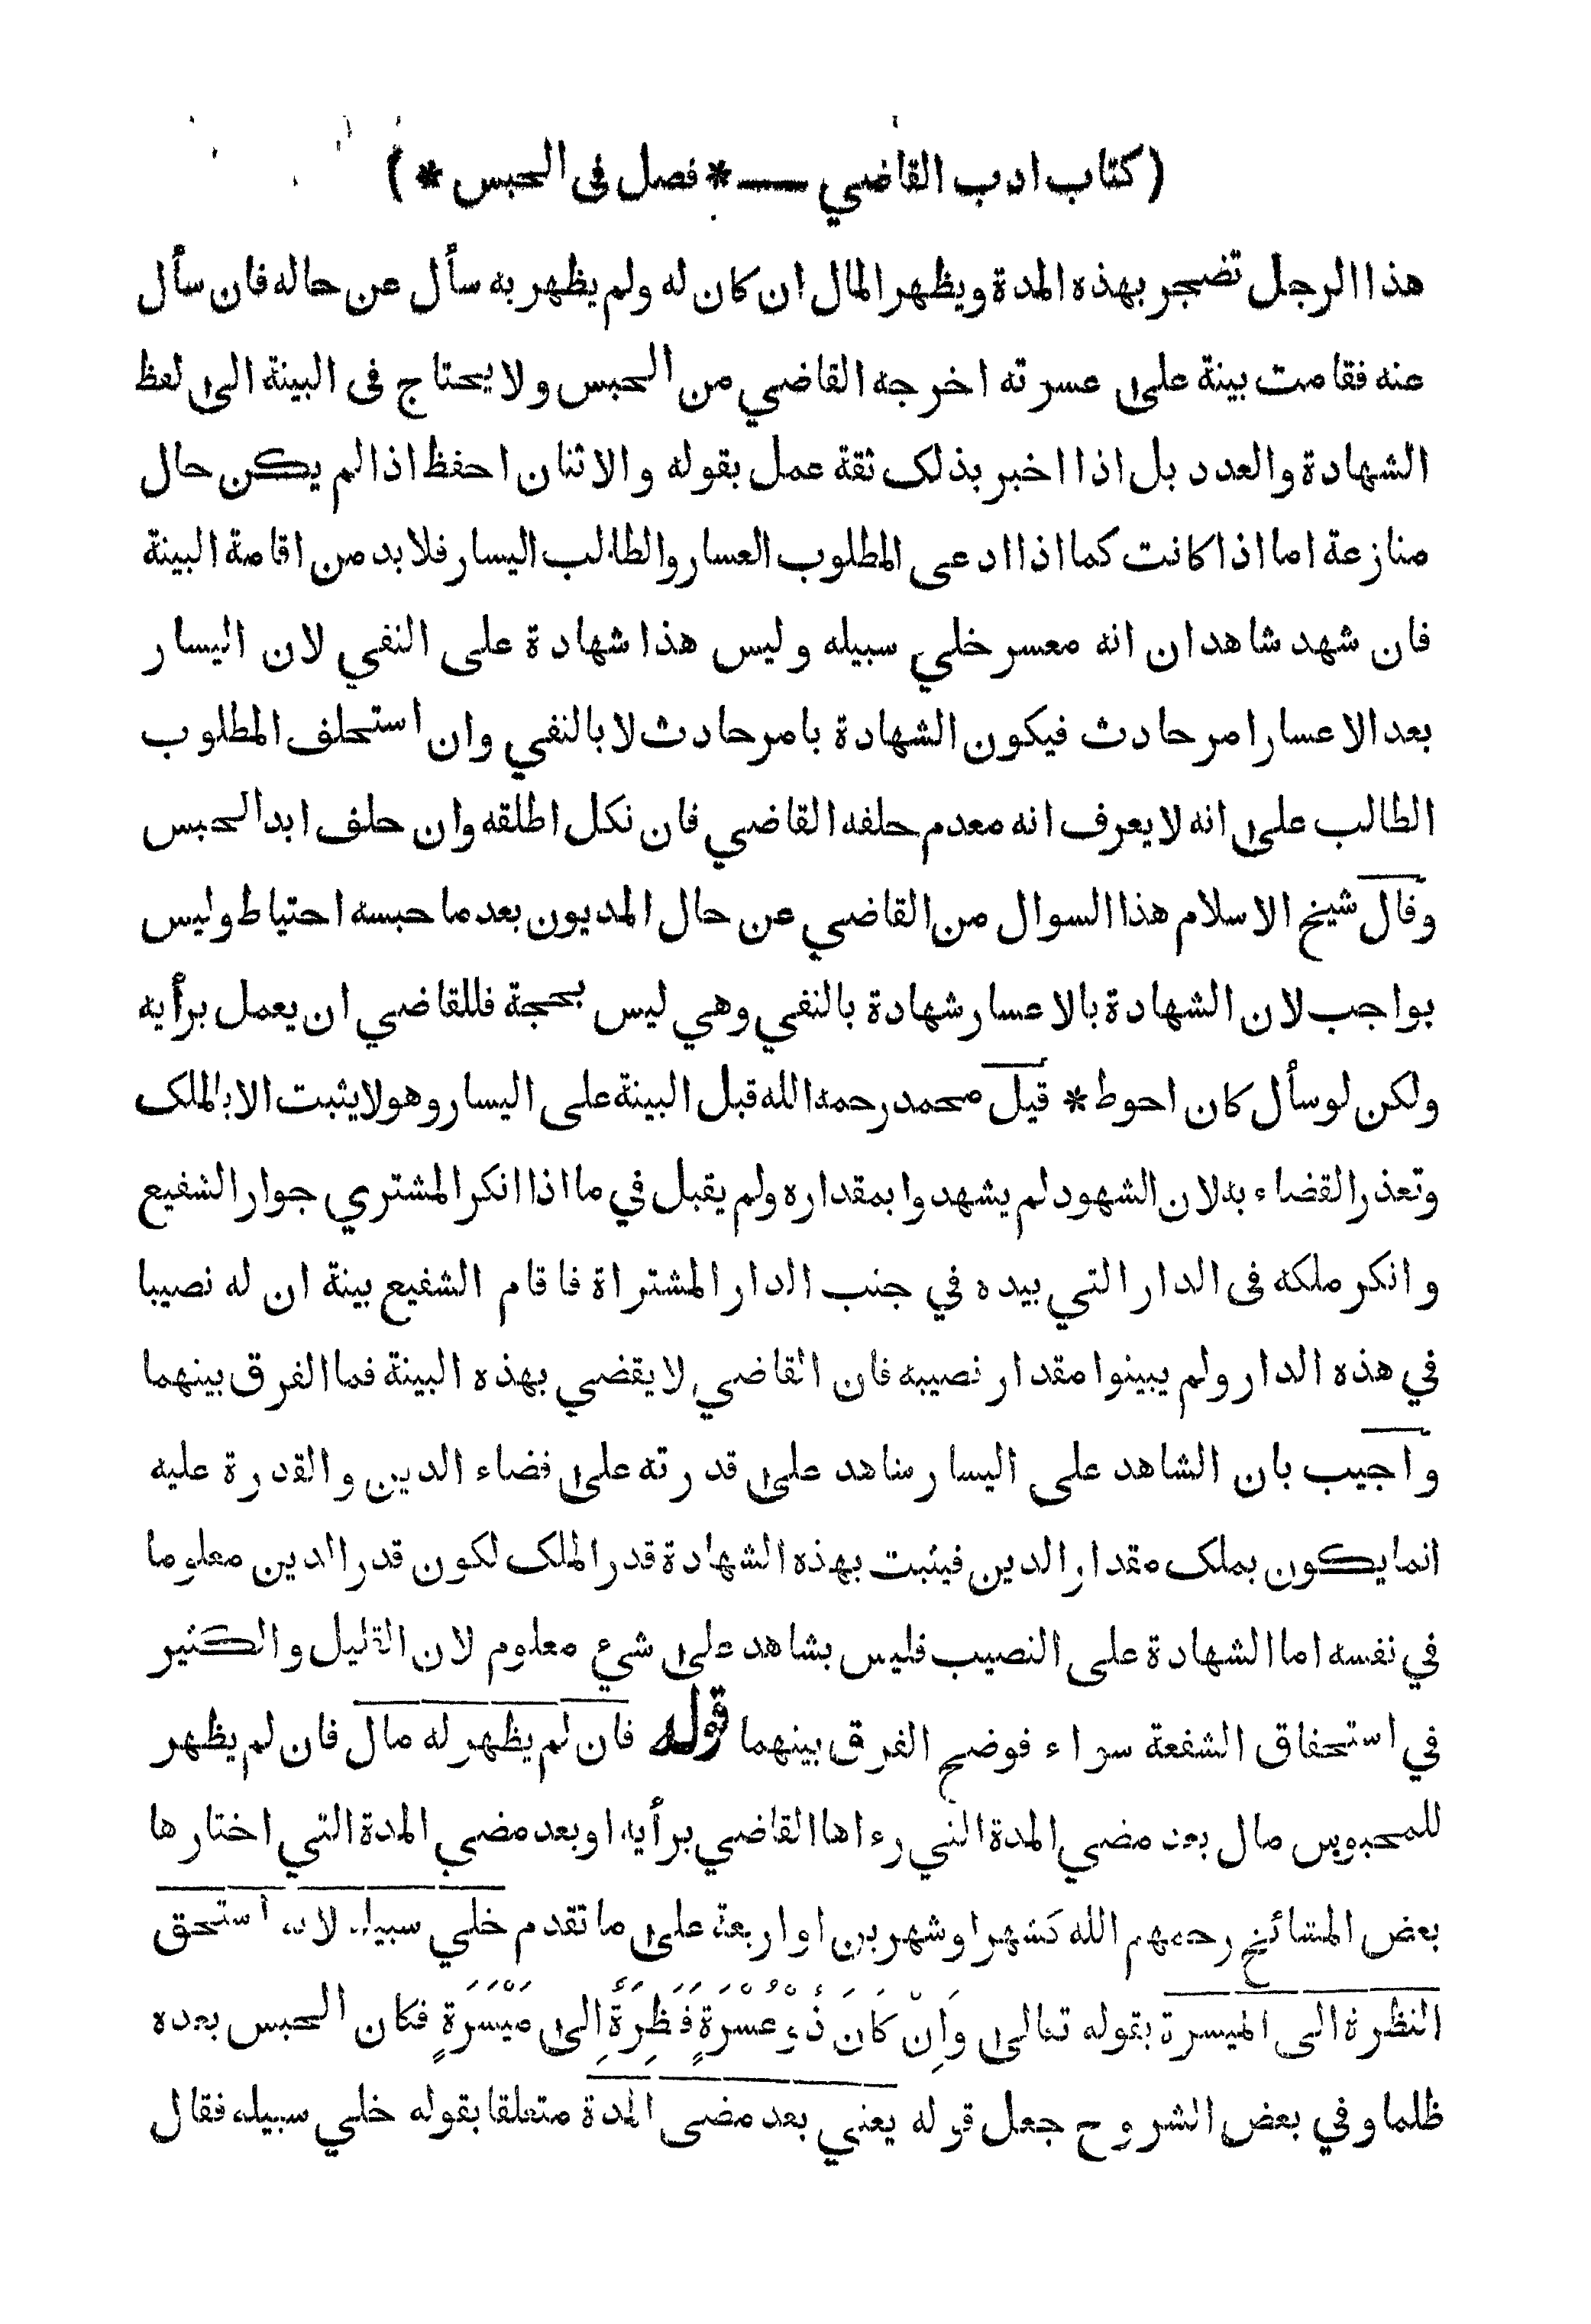 (كتاب ادب القاضي — * فصل فى الحبس *)
هذا الرجل تضجر بهذه المدة ويظهر المال ان كان له ولم يظهر به سأل عن حاله فان سأل
عنه فقامت بينة على عسرته اخرجه القاضي من الحبس ولا يحتاج فى البينة الى لفظ
الشهادة والعدد بل اذا اخبر بذلك ثقة عمل بقوله والاثنان احفظ اذا لم يكن حال
منازعة اما اذا كانت كما اذا ادعى المطلوب العسار والطالب اليسار فلا بد من اقامة البينة
فان شهد شاهدان انه معسر خلي سبيله وليس هذا شهادة على النفي لان اليسار
بعد الاعسار امر حادث فيكون الشهادة بامر حادث لا بالنفي وان استحلف المطلوب
الطالب على انه لا يعرف انه معدم حلفه القاضي فان نكل اطلقه وان حلف ابد الحبس
وقال شيخ الاسلام هذا السوال من القاضي عن حال المديون بعد ما حبسه احتياط وليس
بواجب لان الشهادة بالاعسار شهادة بالنفي وهي ليس بحجة فللقاضي ان يعمل برأيه
ولكن لو سأل كان احوط * قيل محمد رحمه الله قبل البينة على اليسار وهو لا يثبت الا بالملك
وتعذر القضاء به لان الشهود لم يشهدوا بمقداره ولم يقبل في ما اذا انكر المشتري جوار الشفيع
وانكر ملكه فى الدار التي بيده في جنب الدار المشتراة فاقام الشفيع بينة ان له نصيبا
في هذه الدار ولم يبينوا مقدار نصيبه فان القاضي لا يقضي بهذه البينة فما الفرق بينهما
واجيب بان الشاهد على اليسار شاهد على قدرته على قضاء الدين والقدرة عليه
انما يكون بملك مقدار الدين فيثبت بهذه الشهادة قدر الملك لكون قدر الدين معلوما
في نفسه اما الشهادة على النصيب فليس بشاهد على شيء معلوم لان القليل والكثير
في استحقاق الشفعة سواء فوضح الفرق بينهما قوله فان لم يظهر له مال فان لم يظهر
للمحبوس مال بعد مضي المدة التي رءاها القاضي برأيه او بعد مضي المدة التي اختارها
بعض المشائخ رحمهم الله كشهر او شهرين او اربعة على ما تقدم خلي سبيله لانه استحق
النظرة الى الميسرة بقوله تعالى وَاِنْ كَانَ ذُو عُسْرَةٍ فَنَظِرَةٌ اِلى مَيْسَرَةٍ فكان الحبس بعده
ظلما وفي بعض الشروح جعل قوله يعني بعد مضى المدة متعلقا بقوله خلي سبيله فقال